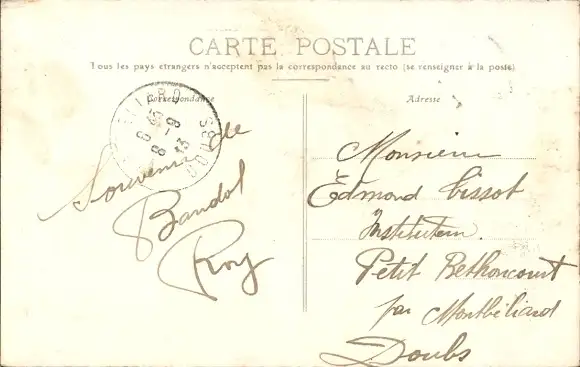 CARTE POSTALE
Tous les pays étrangers n'acceptent pas la correspondance au recto (se renseigner à la poste)
Correspondance
Adresse
8-9
13
DOUBS
Souvenir de
Bandol
Roy
Monsieur
Edmond Cissot
Instituteur.
Petit Bethoncourt
par Montbéliard
Doubs